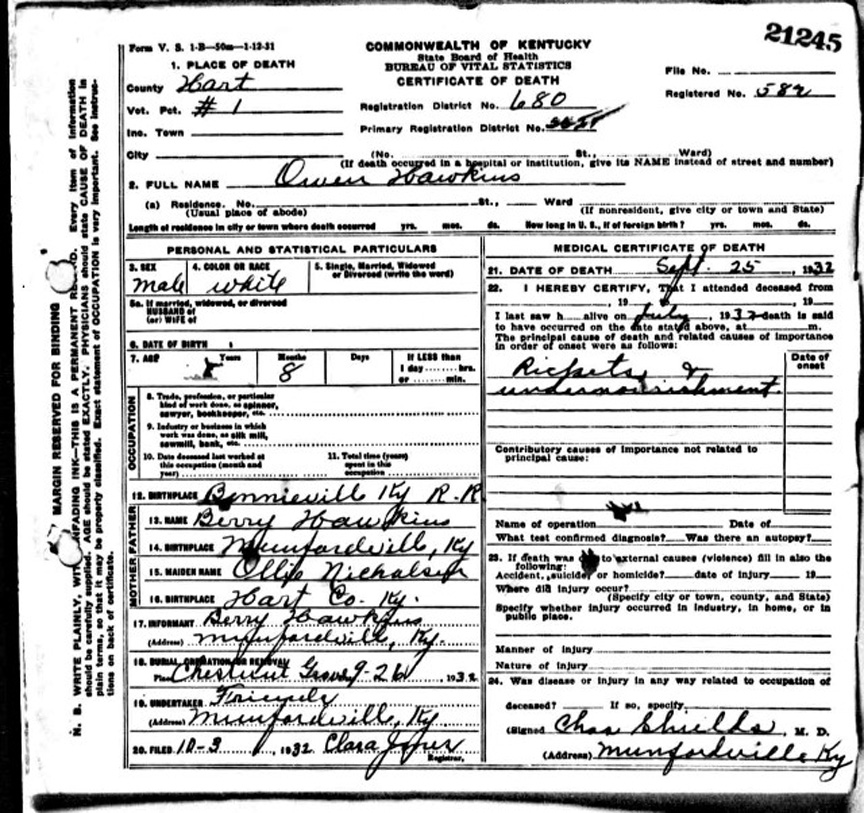 21245
Form V. S. 1-B—50m—1-12-31
COMMONWEALTH OF KENTUCKY
State Board of Health
BUREAU OF VITAL STATISTICS
CERTIFICATE OF DEATH
File No.
Registered No. 582
1. PLACE OF DEATH
County Hart
Vot. Pct. # 1
Inc. Town
Registration District No. 680
Primary Registration District No.
City (No. St., Ward)
(If death occurred in a hospital or institution, give its NAME instead of street and number)
2. FULL NAME Owen Hawkins
(a) Residence. No. St., Ward
(Usual place of abode) (If nonresident, give city or town and State)
Length of residence in city or town where death occurred yrs. mos. ds. How long in U. S., if of foreign birth? yrs. mos. ds.
PERSONAL AND STATISTICAL PARTICULARS
3. SEX 4. COLOR OR RACE 5. Single, Married, Widowed
or Divorced (write the word)
male white
5a. If married, widowed, or divorced
HUSBAND of
(or) WIFE of
6. DATE OF BIRTH
7. AGE Years Months Days If LESS than
1 day hrs.
or min.
8
OCCUPATION
8. Trade, profession, or particular
kind of work done, as spinner,
sawyer, bookkeeper, etc.
9. Industry or business in which
work was done, as silk mill,
sawmill, bank, etc.
10. Date deceased last worked at
this occupation (month and
year)
11. Total time (years)
spent in this
occupation
12. BIRTHPLACE Bonnieville Ky R-R
FATHER
13. NAME Berry Hawkins
14. BIRTHPLACE Munfordville, Ky
MOTHER
15. MAIDEN NAME Ollie
16. BIRTHPLACE Hart Co. Ky.
17. INFORMANT Berry Hawkins
(Address) Munfordville, Ky.
18. BURIAL, CREMATION OR REMOVAL
Place Chestnut Grove 9-26 1932
19. UNDERTAKER Friends
(Address) Munfordville, Ky
20. FILED 10-3, 1932 Clara Jones
Registrar.
MEDICAL CERTIFICATE OF DEATH
21. DATE OF DEATH Sept. 25, 1932
22. I HEREBY CERTIFY, That I attended deceased from
, 19 , 19
I last saw h alive on July, 1932 death is said
to have occurred on the date stated above, at m.
The principal cause of death and related causes of importance
in order of onset were as follows:
Date of
onset
Rickets &
undernourishment.
Contributory causes of importance not related to
principal cause:
Name of operation Date of
What test confirmed diagnosis? Was there an autopsy?
23. If death was to external causes (violence) fill in also the
following:
Accident, suicide or homicide? date of injury 19
Where did injury occur?
(Specify city or town, county, and State)
Specify whether injury occurred in industry, in home, or in
public place.
Manner of injury
Nature of injury
24. Was disease or injury in any way related to occupation of
deceased? If so, specify
(Signed Chas Shields, M. D.
(Address) Munfordville Ky
MARGIN RESERVED FOR BINDING
N. B. WRITE PLAINLY, WITH UNFADING INK—THIS IS A PERMANENT RECORD. Every item of information
should be carefully supplied. AGE should be stated EXACTLY. PHYSICIANS should state CAUSE OF DEATH in
plain terms, so that it may be properly classified. Exact statement of OCCUPATION is very important. See instruc-
tions on back of certificate.